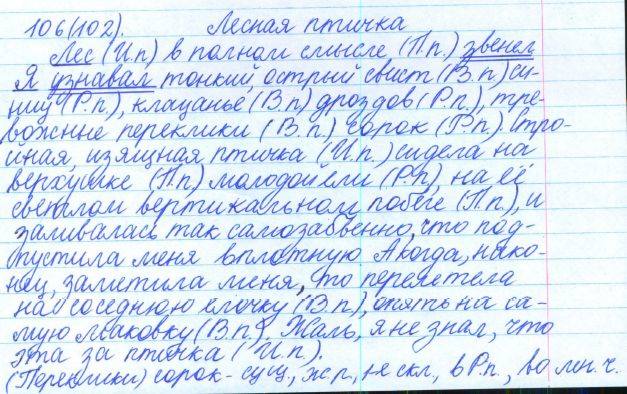 106(102). Лесная птичка
Лес (И.п) в полном смысле (П.п.) звенел
Я узнавал тонкий, острый свист (В.п) си-
ниц (Р.п.), клацанье (В.п) дроздов (Р.п.), тре-
вожные переклики (В.п.) сорок (Р.п). Стро-
йная, изящная птичка (И.п.) сидела на
верхушке (П.п) молодой ели (Р.п), на её
светлом вертикальном побеге (П.п), и
заливалась так самозабвенно, что под-
пустила меня вплотную А когда, нако-
нец, заметила меня, то перелетела
на соседнюю елочку (В.п), опять на са-
мую маковку (В.п.), Жаль, я не знал, что
эта за птичка (И.п).
(Переклики) сорок - сущ., ж.р, не скл., в Р.п., во мн. ч.